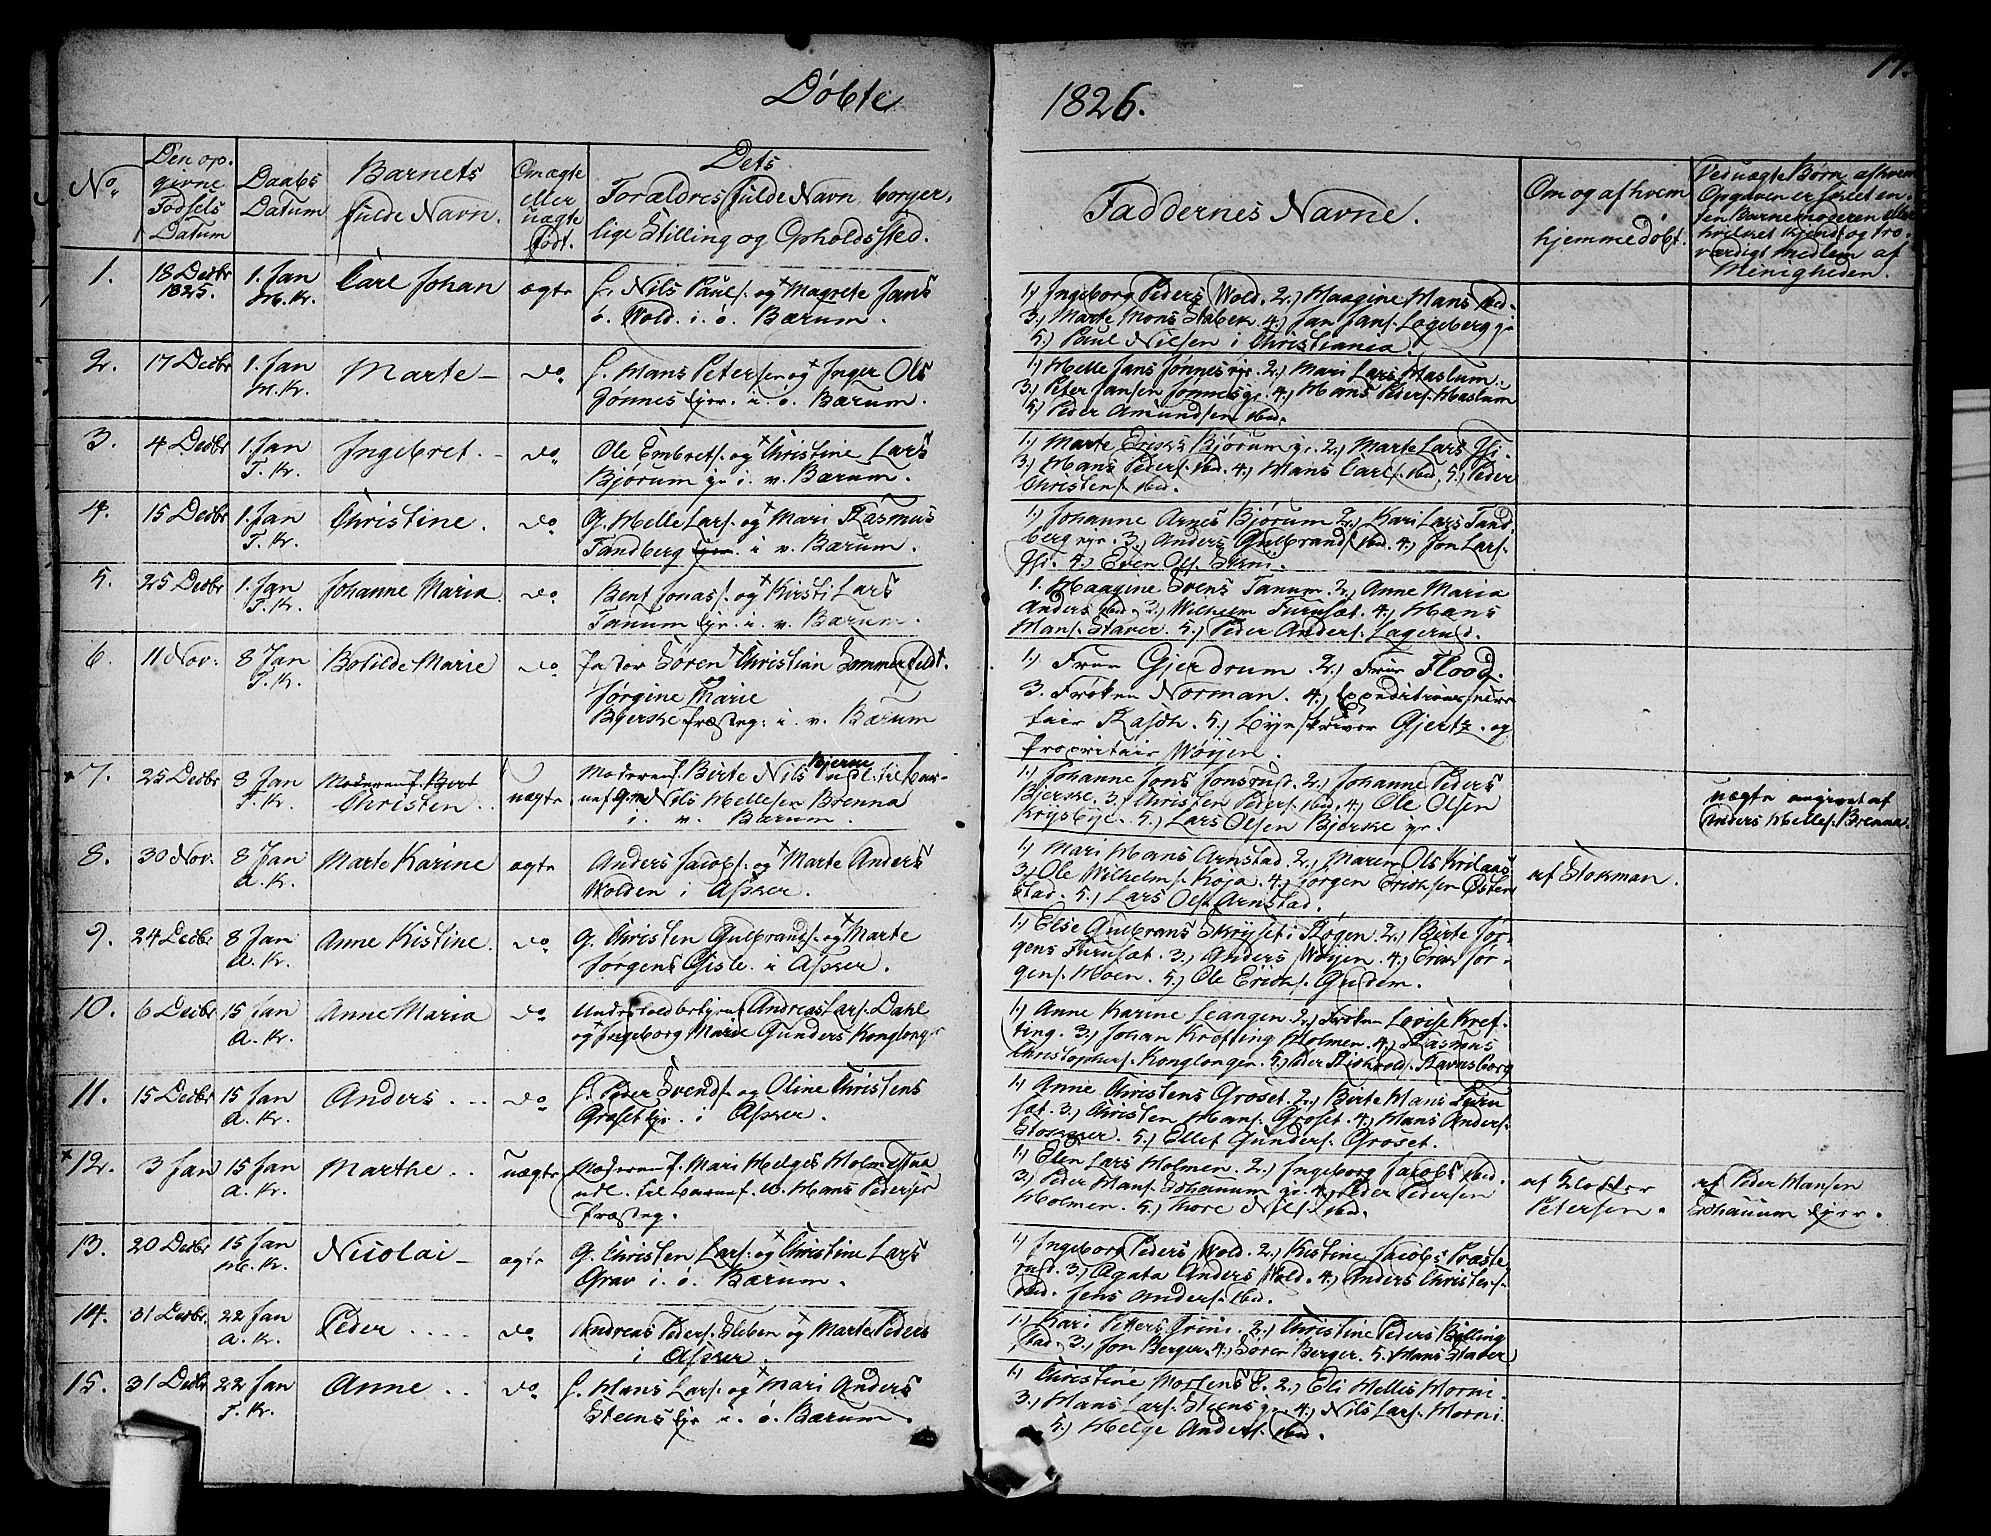 Døbte
1826.
17.
No.
Den op.
givne
Fødsels
Datum
Daabs
Datum
Barnets
fulde Navn.
Om ægte
eller
uægte
født.
Dets
Forældres fulde Navn, borger,
lige Stilling og Opholdssted.
Faddernes Navne.
Om og af hvem
hjemmedøbt.
Ved uægte Børn af hvem
Opgaven er skeet en-
ten Barnemoderen eller
hvilket kjendt og tro-
værdigt Medlem af
Menigheden.
1.
18 Decbr
1825.
1. Jan
H. K.
Carl Johan
ægte
Nils Pauls. og + Magrete Jans
Wold. i. ø. Bærum.
1.) Ingeborg Peders Wold. 2.) Haagine Hans ibd.
3.) Marte Mons Stabek 4.) Jan Jans. Løgeberg
5.) Paul Nilsen i Christiania.
2.
17 Decbr
1. Jan
H. K.
Marte —
do
Hans Petersen og + Inger Ols
Jønnes ejer. i. ø. Bærum.
1.) Helle Jans Jønnes 2.) Mari Lars Haslum.
3.) Peter Jansen Jønnes 4.) Hans Peders. Haslum
5.) Peder Amundsen ibd.
3.
4 Decbr
1. Jan
T. K.
Ingebret. -
do
Ole Embrets. og + Christine Lars
Bjørum i. v. Bærum.
1.) Marte Eriks Bjørum 2.) Marte Lars
3.) Hans Peders. ibd. 4.) Hans Carls. ibd. 5.) Peder
Christens. ibd.
4.
15 Decbr
1. Jan
T. K.
Christine.
do
G. Helle Lars. og + Mari Rasmus
Tandberg i v. Bærum.
1.) Johanne Arnes Bjørum 2.) Kari Lars Tand-
berg 3.) Anders Gulbrands. ibd. 4.) Jon Lars.
5.) Even Ols.
5.
25 Decbr
1. Jan
T. K.
Johanne Maria
do
Bent Jonas. og + Kirsti Lars
Tanum i. v. Bærum.
1. Haagine Svens Tanum. 2.) Anne Maria
Anders ibd. 3.) Wilhelm Furuset. 4.) Hans
Hans. Staver. 5.) Peder Anders. Lagerud.
6.
11 Nov.
8 Jan
T. K.
Botilde Marie
do
Pastor Søren + Christian Sommerfeldt.
og
Jørgine Marie
Bjerske Præsteg: i. v. Bærum
1.) Frue Gjerdrum. 2.) Frue Flood.
3. Frøken Norman. 4.)
Rasch. 5.) Byeskriver Gjertz. og
Proprietair Wøyen.
+ 7.
25 Decbr
8 Jan
T. K.
Christen
uægte
Moderen f. Birte Nils
Nils Hellesen Brenna
i. v. Bærum.
1.) Johanne Jons Jonsrud. 2.) Johanne Peders
Bjerske. 3.) Christen Peders. ibd. 4.) Ole Olsen
5.) Lars Olsen Bjerke
uægte angivet af
Anders Helles. Brenna.
8.
30 Nov.
8 Jan
A. K.
Marte Karine
ægte
Anders Jacobs. og + Marte Anders
Wolden i Asker.
1.) Mari Hans Arnstad. 2.) Maren Ols
3.) Ole Wilhelms. Køja. 4.) Jørgen Eriksen Østen
stad. 5.) Lars Ols. Arnstad.
af Stokman.
9.
24 Decbr
8 Jan
A. K.
Anne Kistine.
do
G. Christen Gulbrands. og + Marte
Jørgens Gisle. i Asker.
1.) Else Gulbrans Skryset i Røgen. 2.) Birte Jør-
gens Furuset. 3.) Anders Wøyen. 4.) Erik Jør-
gens. Hoen. 5.) Ole Eriks. Gudem.
10.
6 Decbr
15 Jan
A. K.
Anne Maria
do
Andreas Lars. Dahl
og + Ingeborg Marie Gunders Konglong
1.) Anne Karine Leangen. 2.) Frøken Lovise Kref-
ting. 3.) Johan Krefting Holmen. 4.) Rasmus
Christophers. Konglongen. 5.) Peder Ravnsborg
11.
15 Decbr
15 Jan
A. K.
Anders ...
do
Peder Svends. og Oline Christens
Groset i Asker.
1.) Anne Christens Groset. 2.) Birte Hans Furu
set. 3.) Christen Hans. Groset. 4.) Hans Anders.
Stokker. 5.) Ellef Gunders. Groset.
+ 12.
3 Jan
15 Jan
A. K.
Marthe ..
uægte
Moderen f. Mari Helges Holmestua
udl. til Barnef. U. Hans Pedersen
Præsteg.
1.) Elen Lars Holmen. 2.) Ingeborg Jacobs ibd.
3.) Peder Hans. 4.) Peder Pedersen
Holmen. 5.) Thore Nils. ibd.
af Klokker
Petersen.
af Peder Hansen
13.
20 Decbr
15 Jan
H. K.
Nicolai —
ægte
G. Christen Lars. og + Christine Lars
Grav i. ø. Bærum.
1.) Ingeborg Peders Wold. 2.) Kistine Jacobs Præste
rud. 3.) Agata Anders Wold. 4.) Anders Christens.
ibd. Jens Anders. ibd.
14.
31 Decbr.
22 Jan
A. K.
Peder ....
do
Andreas Peders. Sleben og + Marte Peders
i Asker.
1.) Kari Peders 2.) Christine Peders Billing
stad. 3.) Jon Berger. 4.) Søren Berger. 5. Hans Staver
15.
31 Decbr
22 Jan
T. K.
Anne ..
do
Hans Lars. og + Mari Anders
Steens i. ø. Bærum.
1.) Christine Mortens 2.) Eli Helles Horni.
3.) Hans Lars. Steens 4.) Nils Lars. Horni
5.) Helge Anders. ibd.